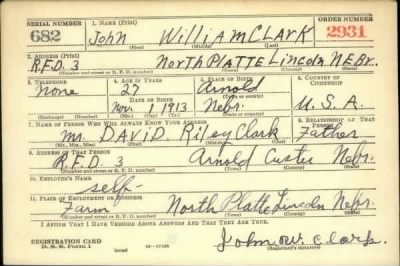 SERIAL NUMBER 1. NAME (Print) ORDER NUMBER
682 John William Clark 2931
(First) (Middle) (Last)
2. ADDRESS (Print)
R.F.D. 3 North Platte Lincoln NEBr.
(Number and street or R. F. D. number) (Town) (County) (State)
3. TELEPHONE 4. AGE IN YEARS 5. PLACE OF BIRTH 6. COUNTRY OF CITIZENSHIP
None 27 Arnold
DATE OF BIRTH
Nov. 1913 Nebr. U.S.A.
7. NAME OF PERSON WHO WILL ALWAYS KNOW YOUR ADDRESS 8. RELATIONSHIP OF THAT PERSON
Mr. DAViD. Riley Clark Father
9. ADDRESS OF THAT PERSON
R.F.D. 3 Arnold Custer Nebr.
(Number and street or R. F. D. number) (Town) (County) (State)
10. EMPLOYER'S NAME
self
11. PLACE OF EMPLOYMENT OR BUSINESS
Farm North Platte Lincoln Nebr.
(Number and street or R. F. D. number) (Town) (County) (State)
I AFFIRM THAT I HAVE VERIFIED ABOVE ANSWERS AND THAT THEY ARE TRUE.
REGISTRATION CARD
D. S. S. FORM 1 John W. Clark
(Registrant's signature)